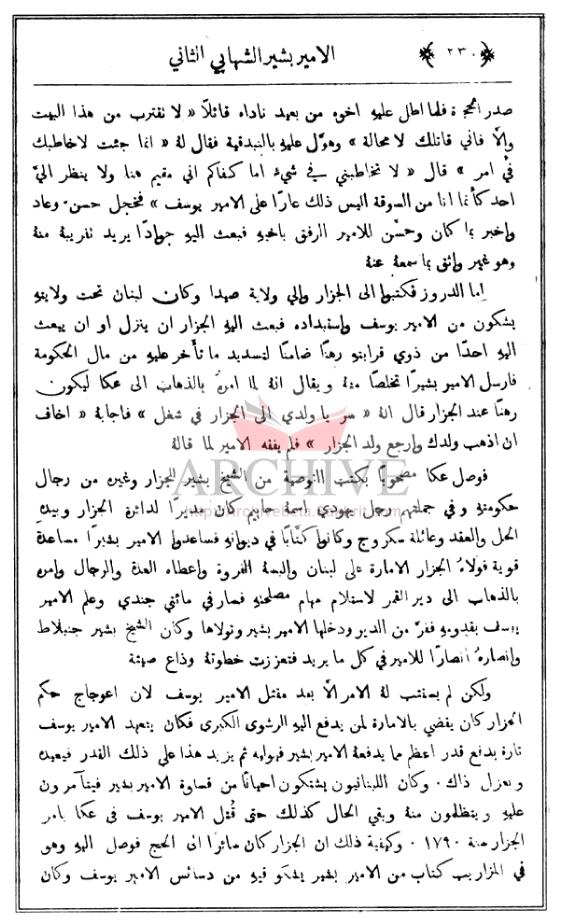 ﴿٢٣٠﴾ الامير بشير الشهابي الثاني
صدر الحجرة فلما اطل عليه اخوه من بعيد ناداه قائلًا « لا تقترب من هذا البيت
والّا فاني قاتلك لا محالة » وهوّل عليه بالبندقية فقال لهُ « انما جئت لاخاطبك
في امر » قال « لا تخاطبني في شيءٍ اما كفاكم اني مقيم هنا ولا ينظر اليّ
احد كأنما انا من السوقة اليس ذلك عارًا على الامير يوسف » فخجل حسن وعاد
واخبر بما كان وحسّن للامير الرفق باخيهِ فبعث اليهِ جوادًا يريد تقريبهُ منهُ
وهو غير واثق بما سمعهُ عنهُ
اما الدروز فكتبوا الى الجزار والي ولاية صيدا وكان لبنان تحت ولايتهِ
يشكون من الامير يوسف واستبداده فبعث اليهِ الجزار ان ينزل او ان يبعث
اليهِ احدًا من ذوي قرابتهِ رهنًا ضامنًا لتسديد ما تأخر عليهِ من مال الحكومة
فارسل الامير بشيرًا تخلصًا منهُ ويقال انهُ لما امرهُ بالذهاب الى عكا ليكون
رهنًا عند الجزار قال لهُ « سر يا ولدي الى الجزار في شغل » فاجابهُ « اخاف
ان اذهب ولدك وارجع ولد الجزار » فلم يفقه الامير لما قالهُ
فوصل عكا مصحوبًا بكتب التوصية من الشيخ بشير للجزار وغيره من رجال
حكومتهِ وفي جملتهم رجل يهودي اسمهُ حاييم كان مديرًا لدائرة الجزار وبيدهِ
الحل والعقد وعائلة سكروج وكانوا كتّابًا في ديوانهِ فساعدوا الامير بشيرًا مساعدةً
قوية فولاهُ الجزار الامارة على لبنان والبسهُ الفروة واعطاه العدة والرجال وامره
بالذهاب الى دير القمر لاستلام مهام مصلحتهِ فسار في مائتي جندي وعلم الامير
يوسف بقدومهِ ففرّ من الدير ودخلها الامير بشير وتولاها وكان الشيخ بشير جنبلاط
وانصارهُ انصارًا للامير في كل ما يريد فتعززت خطوتهُ وذاع صيتهُ
ولكن لم يستتب لهُ الامر الّا بعد مقتل الامير يوسف لان اعوجاج حكم
الجزار كان يقضي بالامارة لمن يدفع اليهِ الرشوى الكبرى فكان يتعهد الامير يوسف
تارة بدفع قدر اعظم مما يدفعهُ الامير بشير فيوليه ثم يزيد هذا على ذلك القدر فيعيده
ويعزل ذاك . وكان اللبنانيون يشتكون احيانًا من قساوة الامير بشير فيتآمرون
عليهِ ويتظلمون منهُ وبقي الحال كذلك حتى قُتل الامير يوسف في عكا بامر
الجزار سنة ١٧٩٠ . وكيفية ذلك ان الجزار كان سائرًا الى الحج فوصل اليهِ وهو
في المزاريب كتاب من الامير بشير يشكو فيهِ من دسائس الامير يوسف وكان
ARCHIVE